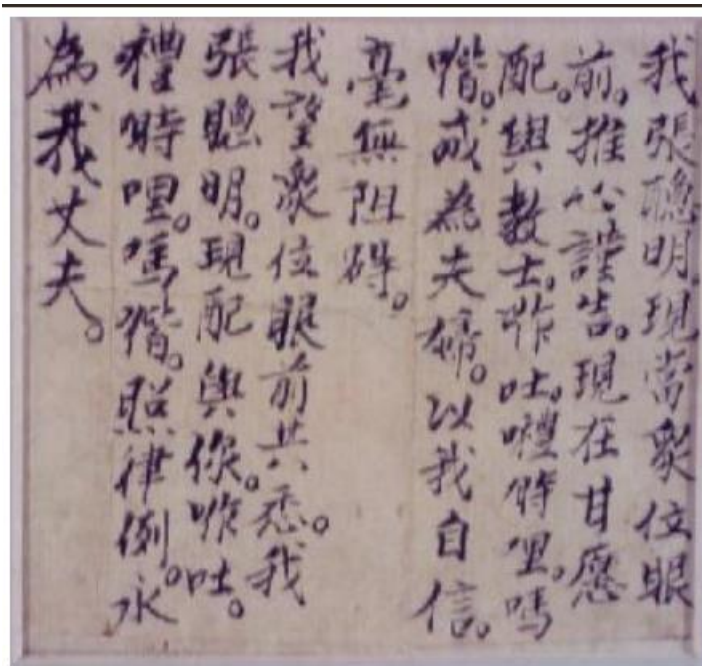 我張聰明。現當衆位眼
前。推心謹告。現在甘愿
配。與教士。咋吐。時哩。嗎
喈。成為夫婦。以我自信。
毫無阻碍。
我望衆位眼前共悉。我
張聰明。現配與你。咋吐。
禮時哩。嗎偕。照律例。永
為我丈夫。